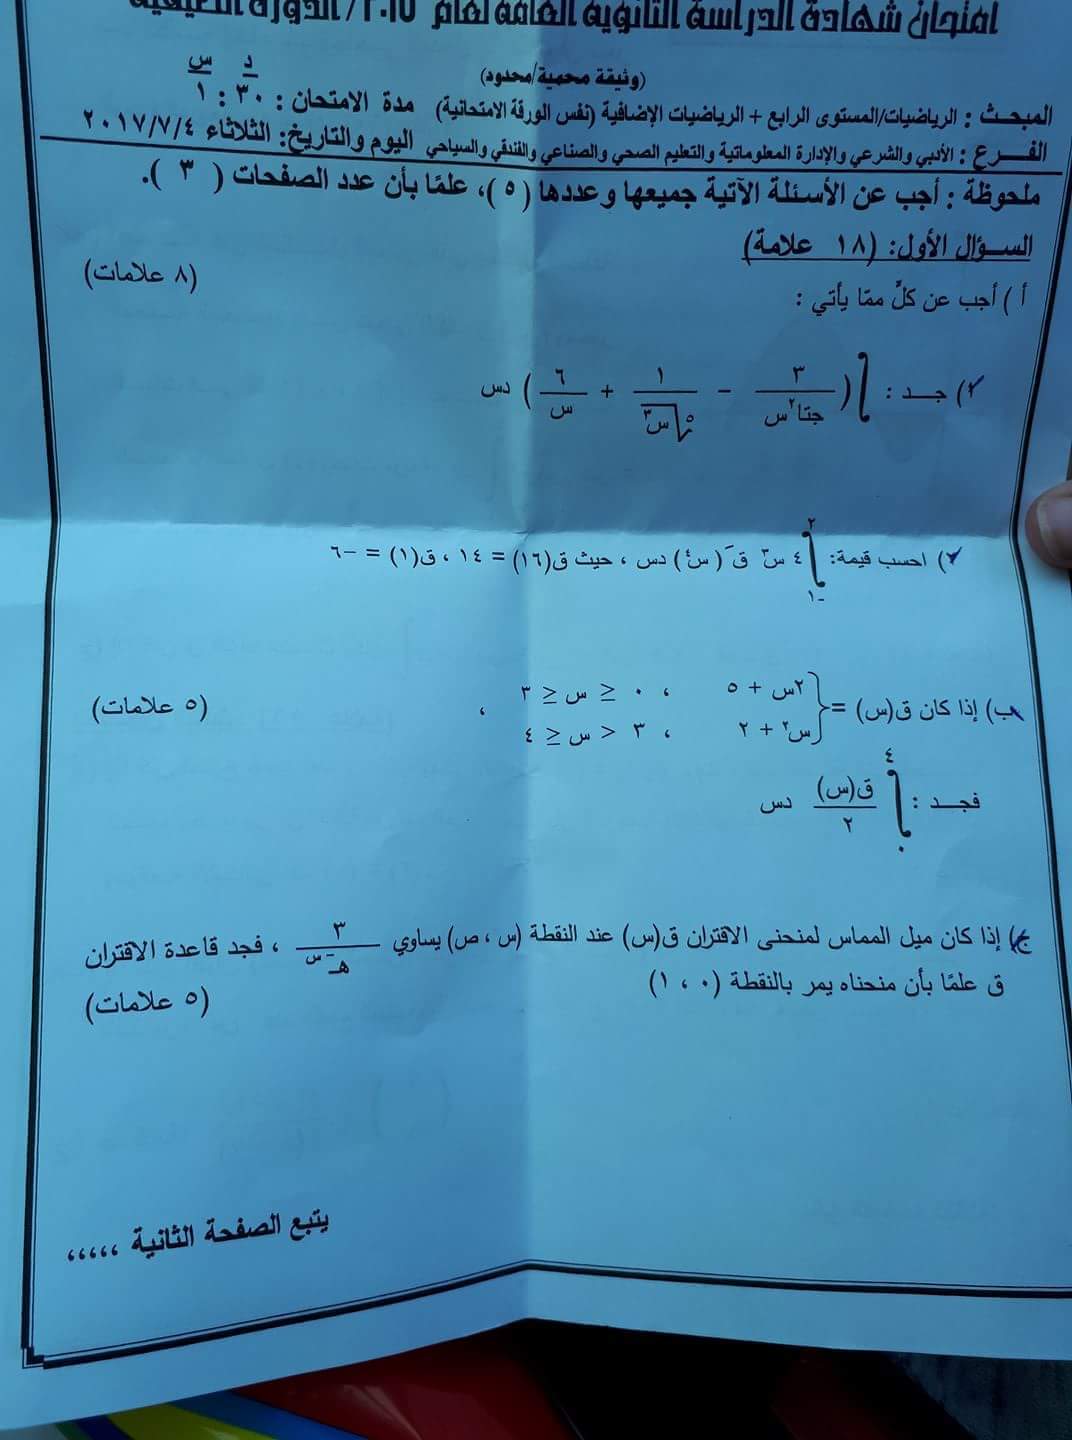 امتحان شهادة الدراسة الثانوية العامة لعام ٢٠١٧ / الدورة الصيفية
(وثيقة محمية/محدود)
د س
المبحث : الرياضيات/المستوى الرابع + الرياضيات الإضافية (نفس الورقة الامتحانية) مدة الامتحان : ٣٠ : ١
الفرع : الأدبي والشرعي والإدارة المعلوماتية والتعليم الصحي والصناعي والفندقي والسياحي اليوم والتاريخ: الثلاثاء ٢٠١٧/٧/٤
ملحوظة : أجب عن الأسئلة الآتية جميعها وعددها (٥)، علمًا بأن عدد الصفحات ( ٣ ).
السؤال الأول: (١٨ علامة)
أ ) أجب عن كلٍّ ممّا يأتي : (٨ علامات)
١) جد : ∫ ( ٣/جتا²س − ١/⁵√س³ + ٦/س ) دس
٢) احسب قيمة: ∫ ٤ س³ قَ (س⁴) دس ، حيث ق(١٦) = ١٤ ، ق(١) = −٦
٢
−١
ب) إذا كان ق(س) = { ٢س + ٥ ، ٠ ≤ س ≤ ٣ (٥ علامات)
س² + ٢ ، ٣ < س ≤ ٤ ،
فجد : ∫ ق(س)/٢ دس
٤
٠
ج) إذا كان ميل المماس لمنحنى الاقتران ق(س) عند النقطة (س ، ص) يساوي ٣/هـ⁻س ، فجد قاعدة الاقتران
ق علمًا بأن منحناه يمر بالنقطة (٠ ، ١) (٥ علامات)
يتبع الصفحة الثانية ،،،،،